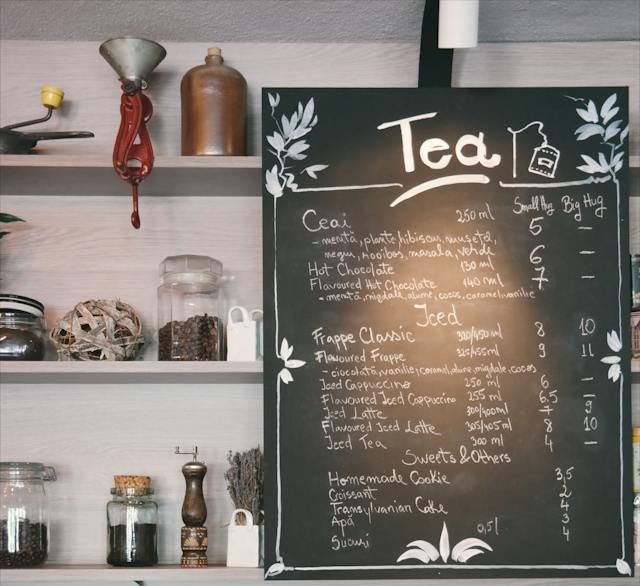 Tea
Small Hug Big Hug
Ceai 250 ml 5 —
- mentă, plante, hibiscus, mușețel,
negru, rooibos, masala, verde
Hot Chocolate 130 ml 6 —
Flavoured Hot Chocolate 140 ml 7 —
- mentă, migdale, alune, cocos, caramel, vanilie
Iced
Frappe Classic 320/450 ml 8 10
Flavoured Frappe 325/455 ml 9 11
- ciocolată, vanilie, caramel, alune, migdale, cocos
Iced Cappuccino 250 ml 6 —
Flavoured Iced Cappuccino 255 ml 6.5 —
Iced Latte 300/400 ml 7 9
Flavoured Iced Latte 305/405 ml 8 10
Iced Tea 300 ml 4 —
Sweets & Others
Homemade Cookie 3,5
Croissant 2
Transylvanian Cake 4
Apă 3
Sucuri 0,5 l 4